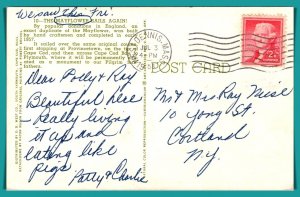 We saw this Fri.
10—THE MAYFLOWER SAILS AGAIN!
By popular
in England, an
exact duplicate of the Mayflower, was built
by hand craftsmen and completed in early
1957.
It sailed over the same original course
first stop at Provincetown, on the tip of
Cape Cod, and then
Plymouth, where it will be a permanent
monument to our Pilgrim
HYANNIS, MASS.
JUL
PM
POST CARD
2¢
Dear Polly & Ray
Beautiful here
Really living
it up and
eating like
pigs.
Patty & Charlie
Mr & Mrs Ray Wise
10 Yong St.
Cortland
N.Y.